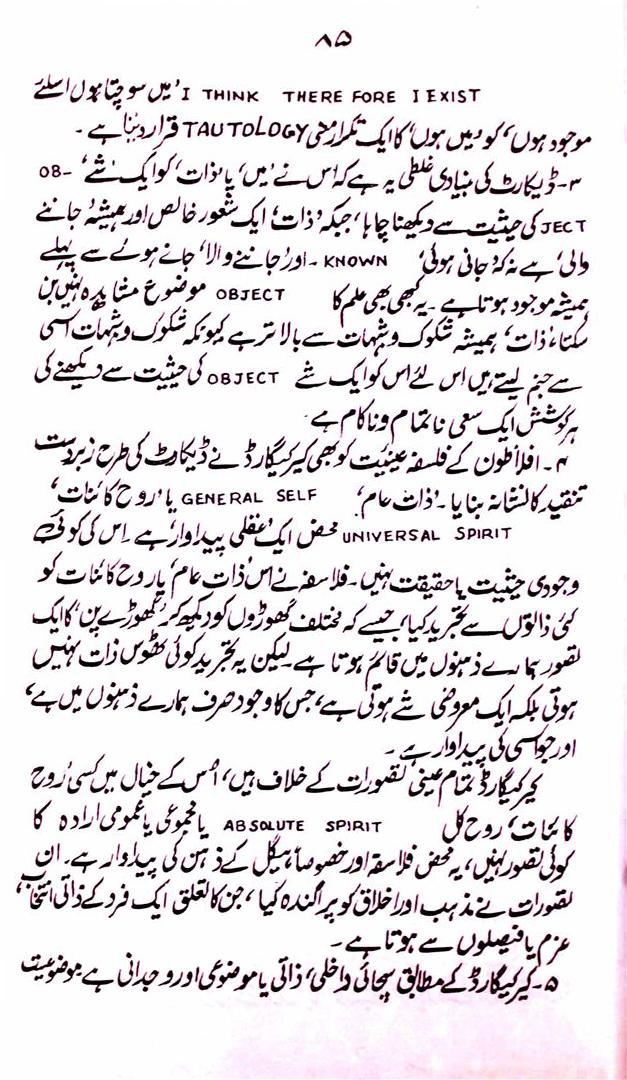 ۸۵
I THINK THERE FORE I EXIST 'میں سوچتا ہوں اسلئے
موجود ہوں' کو 'میں ہوں' کا ایک تکرار معنی TAUTOLOGY قرار دیتا ہے۔
۳۔ ڈیکارٹ کی بنیادی غلطی یہ ہے کہ اس نے 'میں' یا 'ذات' کو ایک 'شے' OB-
JECT کی حیثیت سے دیکھنا چاہا، جبکہ 'ذات' ایک شعور خالص اور ہمیشہ 'جاننے
والی' ہے نہ کہ 'جانی ہوئی' KNOWN ۔ اور 'جاننے والا' جانے ہوئے سے پہلے
ہمیشہ موجود ہوتا ہے۔ یہ کبھی بھی علم کا OBJECT موضوع مشاہدہ نہیں بن
سکتا، 'ذات' ہمیشہ شکوک و شبہات سے بالاتر ہے کیونکہ شکوک و شبہات اسی
سے جنم لیتے ہیں اس لئے اس کو ایک شے OBJECT کی حیثیت سے دیکھنے کی
ہر کوشش ایک سعی ناتمام و ناکام ہے۔
۴۔ افلاطون کے فلسفہ عینیت کو بھی کیرکیگارڈ نے ڈیکارٹ کی طرح زبردست
تنقید کا نشانہ بنایا۔ 'ذات عام' GENERAL SELF یا 'روح کائنات'
UNIVERSAL SPIRIT محض ایک 'عقلی پیداوار' ہے۔ اس کی کوئی
وجودی حیثیت یا حقیقت نہیں۔ فلاسفہ نے اس 'ذات عام' یا روح کائنات کو
کئی ذاتوں سے تجرید کیا، جیسے کہ مختلف گھوڑوں کو دیکھ کر 'گھوڑے پن' کا ایک
تصور ہمارے ذہنوں میں قائم ہوتا ہے لیکن یہ تجرید کوئی ٹھوس ذات نہیں
ہوتی بلکہ ایک معروضی شے ہوتی ہے، جس کا وجود صرف ہمارے ذہنوں میں ہے،
اور جو اسی کی پیداوار ہے۔
کیرکیگارڈ تمام عینی تصورات کے خلاف ہیں، اُس کے خیال میں کسی 'روح
کائنات' روح کل ABSOLUTE SPIRIT یا مجموعی یا عمومی ارادہ کا
کوئی تصور نہیں، یہ محض فلاسفہ اور خصوصاً ہیگل کے ذہن کی پیداوار ہے۔ ان
تصورات نے مذہب اور اخلاق کو پراگندہ کیا، جن کا تعلق ایک فرد کے ذاتی انتخاب،
عزم یا فیصلوں سے ہوتا ہے۔
۵۔ کیرکیگارڈ کے مطابق سچائی داخلی، ذاتی یا موضوعی اور وجدانی ہے موضوعیت